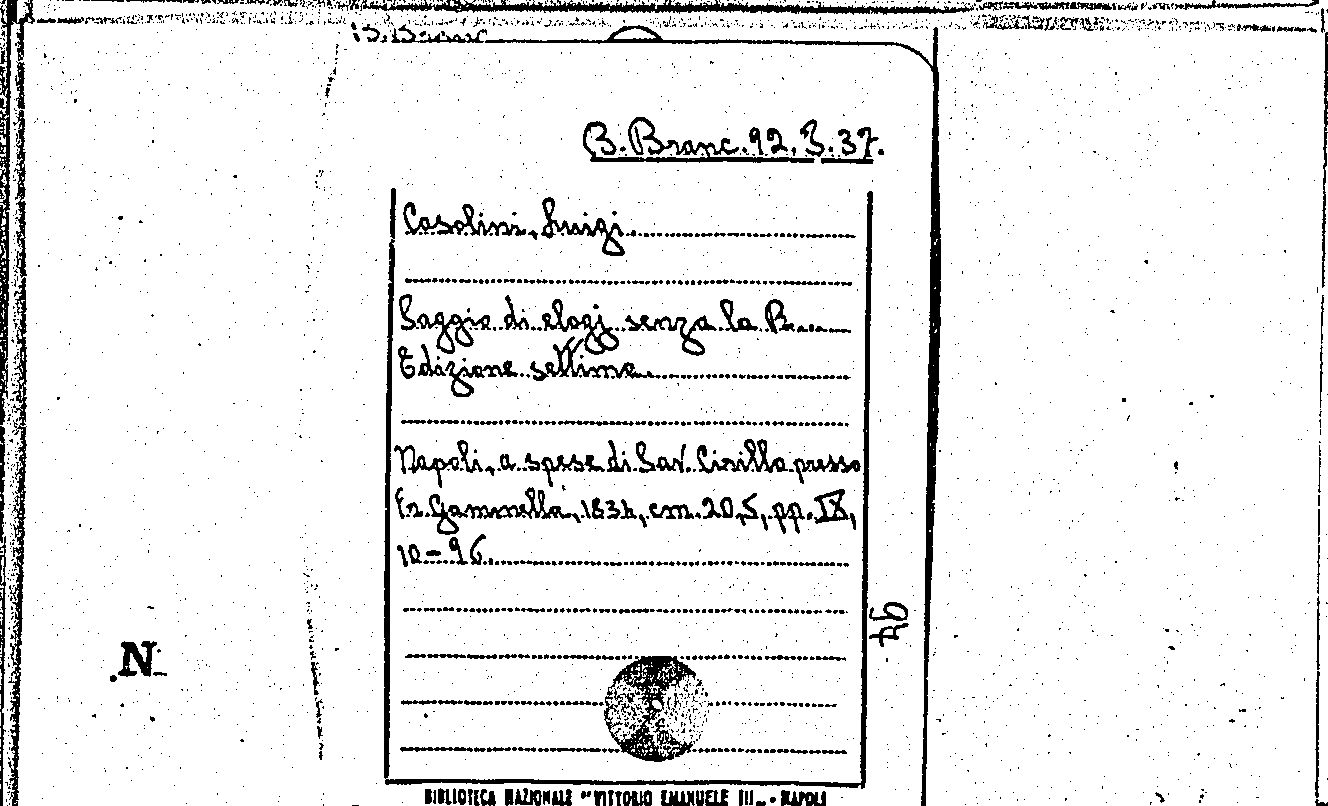 B. Branc. 92. B. 37.
Casolini, Luigi
Saggio di elogj senza la R....
Edizione settima.
Napoli, a spese di Sav. Cirillo presso
Fr. Gammella, 1834, cm. 20,5, pp. IX,
10-96.
94
N
BIBLIOTECA NAZIONALE "VITTORIO EMANUELE III„ - NAPOLI